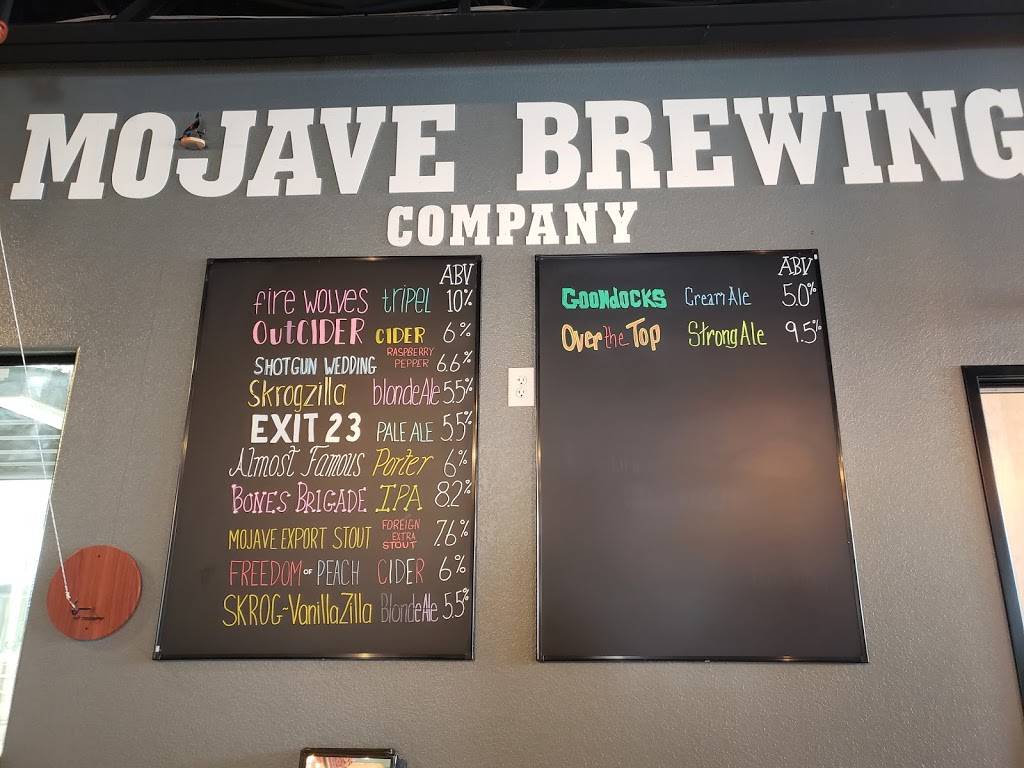 MOJAVE BREWING
COMPANY
ABV
fire wolves tripel 10%
OutCIDER CIDER 6%
SHOTGUN WEDDING RASPBERRY PEPPER 6.6%
Skrogzilla blondeAle 5.5%
EXIT 23 PALE ALE 5.5%
Almost Famous Porter 6%
BONES BRIGADE IPA 8.2%
MOJAVE EXPORT STOUT FOREIGN EXTRA STOUT 7.6%
FREEDOM OF PEACH CIDER 6%
SKROG~VanillaZilla BlondeAle 5.5%
ABV
GOONDOCKS Cream Ale 5.0%
Over the Top Strong Ale 9.5%